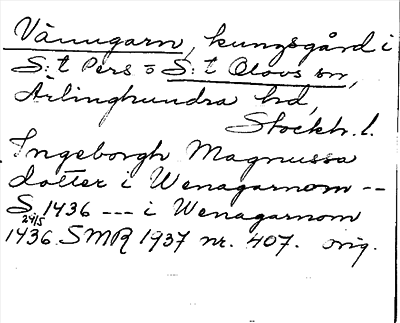 Vänngarn, kungsgård i
S:t Pers o S:t Olovs sn,
Ärlinghundra hd,
Stockh. l.
Ingeborgh Magnussa
dotter i Wenagarnom --
S 1436 --- i Wenagarnom
24/5
1436. SMR 1937 nr. 407. orig.